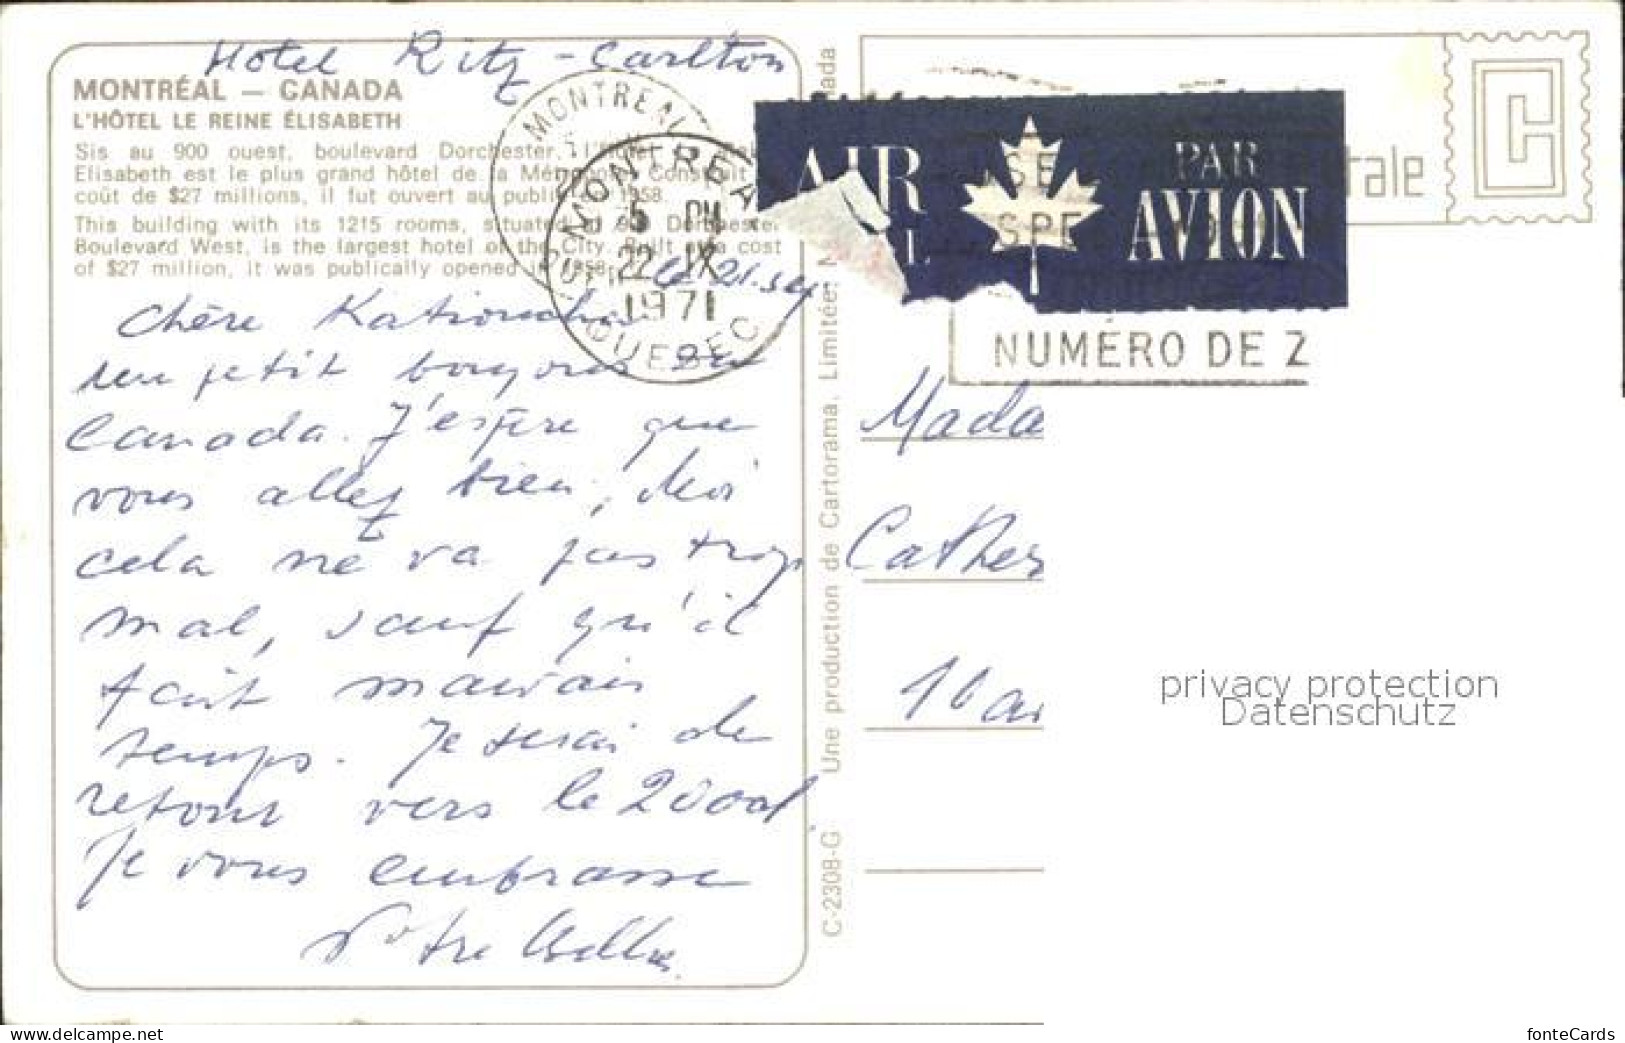 Hotel Ritz - Carlton
MONTRÉAL — CANADA
L'HÔTEL LE REINE ÉLISABETH
Sis au 900 ouest, boulevard Dorchester, l'Hôtel
Elisabeth est le plus grand hôtel de la Métropole. Construit
coût de $27 millions, il fut ouvert au public en 1958.
This building with its 1215 rooms, situated at 900 Dorchester
Boulevard West, is the largest hotel of the City. Built at a cost
of $27 million, it was publically opened in 1958.
le 21. sep.
Chère Katioucha
un petit bonjour du
Canada. J'espère que
vous allez bien, Moi
cela ne va pas trop
mal, sauf qu'il
fait mauvais
temps. Je serai de
retour vers le 20 oct.
Je vous embrasse
Votre
MONTREAL
MONTREAL
5 PM
22 IX
1971
QUEBEC
C-2308-G Une production de Cartorama, Limitée, nada
AIR
PAR
AVION
tale
C
USE
SPE
NUMÉRO DE Z
Mada
Cather
16 av
privacy protection
Datenschutz
www.delcampe.net
fonteCards